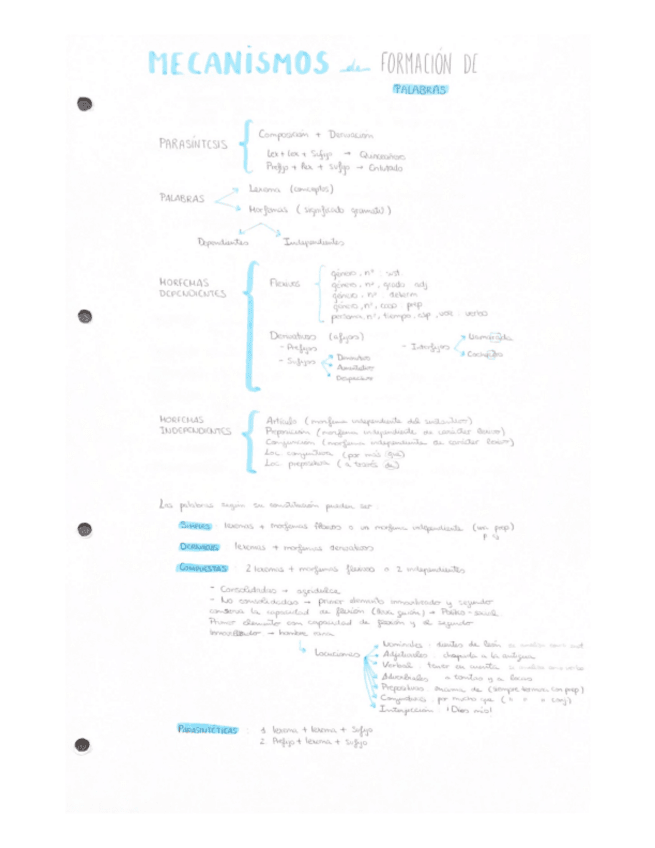 MECANISMOS de FORMACIÓN DE
PALABRAS
PARASÍNTESIS
Composición + Derivación
Lex + Lex + Sufijo → Quinceañero
Prefijo + Lex + Sufijo →
PALABRAS
Lexema (conceptos)
Morfemas (significado gramatil)
Dependientes Independientes
MORFEMAS
DEPENDIENTES
Flexivos
género, nº : sust
género, nº, grado : adj
género, nº : determ
género, nº, caso : prep
persona, nº, tiempo, asp, voz : verbo
Derivativos (afijos)
- Prefijos
- Sufijos
Diminutivo
Aumentativo
Despectivo
- Interfijos
MORFEMAS
INDEPENDIENTES
Artículo (morfema independiente del sustantivo)
Preposición (morfema independiente de carácter léxico)
Conjunción (morfema independiente de carácter léxico)
Loc. conjuntiva (por más que)
Loc. prepositiva (a través de)
Las palabras según su constitución pueden ser:
SIMPLES : lexemas + morfemas flexivos o un morfema independiente (uni. prep)
DERIVADAS : lexemas + morfemas derivativos
COMPUESTAS : 2 lexemas + morfemas flexivos o 2 independientes
- Consolidadas → agridulce
- No consolidadas → primer elemento inmovilizado y segundo
conserva la capacidad de flexión (lleva guión) → Político-social
Primer elemento con capacidad de flexión y el segundo
inmovilizado → hombre rana
Locuciones
Nominales : dientes de león
Adjetivales : chapado a la antigua
Verbal : tener en cuenta
Adverbiales : a tontas y a locas
Prepositivas : encima de (siempre terminan con prep)
Conjuntivas : por mucho que (" " " conj)
Interjección : ¡Dios mío!
PARASINTÉTICAS : 1. lexema + lexema + Sufijo
2. Prefijo + lexema + Sufijo